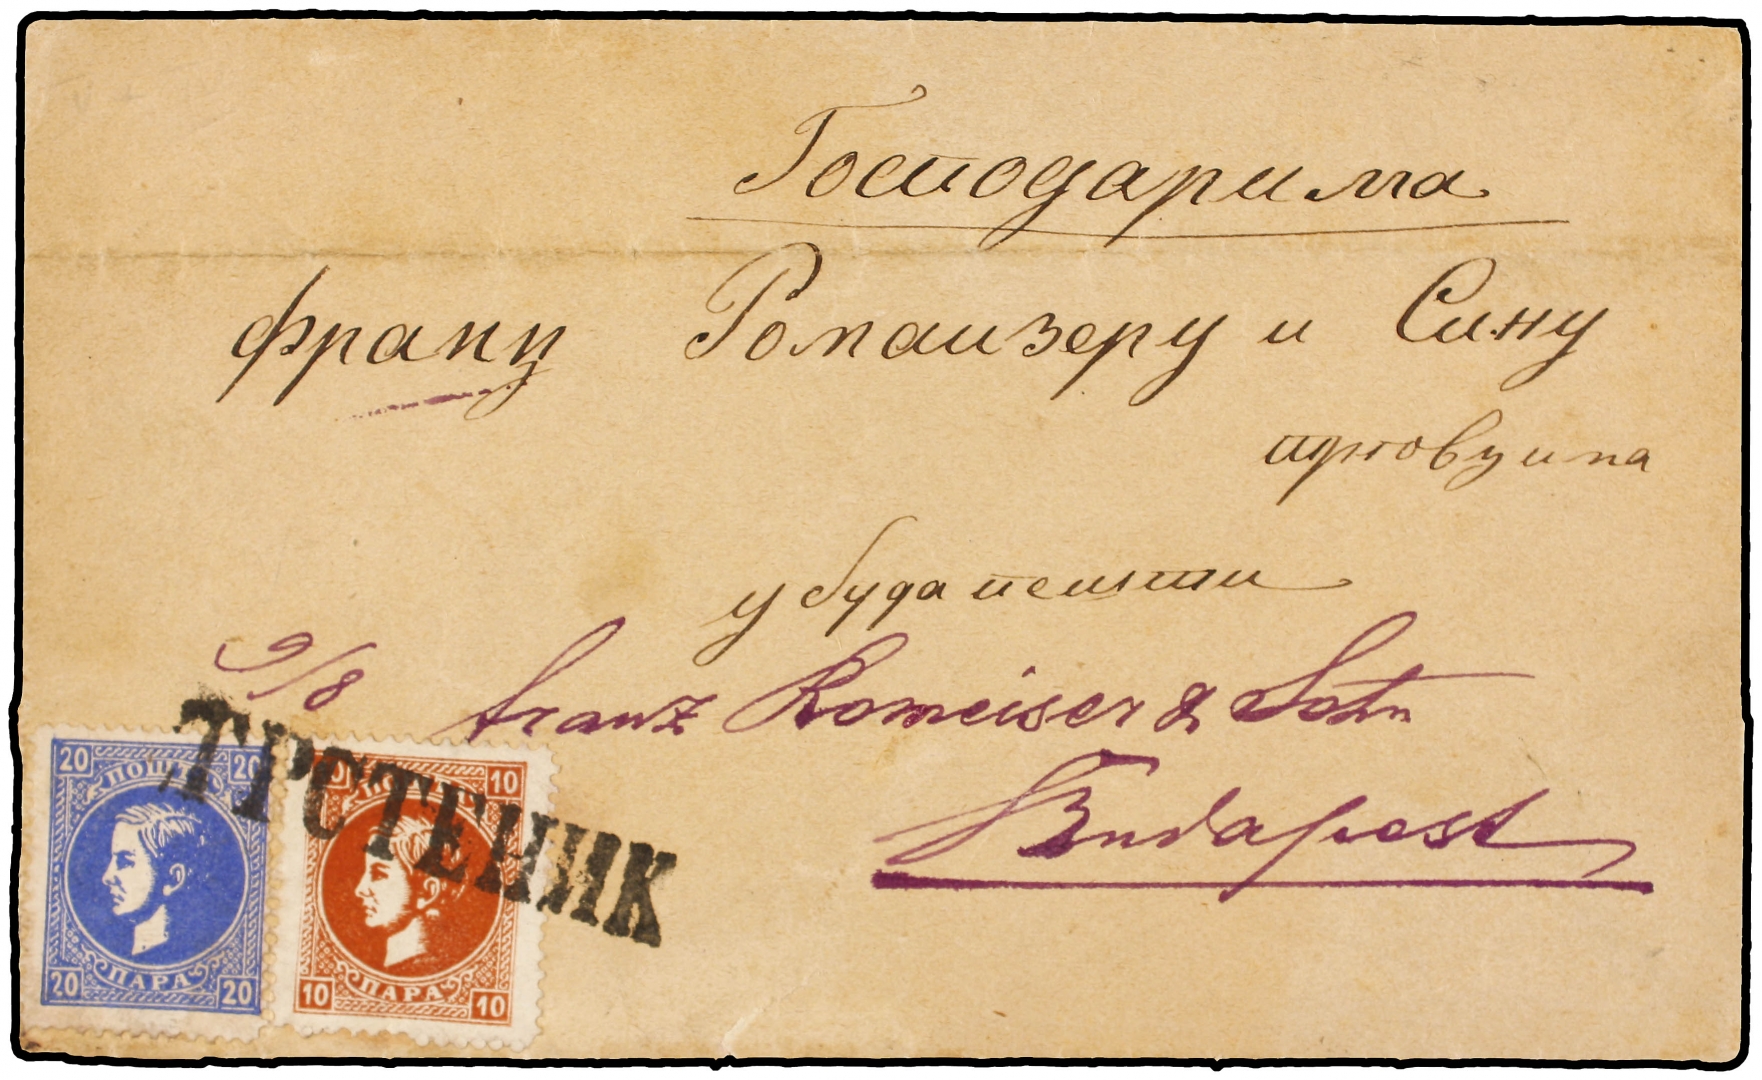 Господарима
Франц Ромаизеру и Сину
у будапешти
9/8 Franz Romeiser & Sohn
Budapest
ТРСТЕНИК
20 20
ПОШТА
ПАРА
20 20
10 10
ПОШТА
ПАРА
10 10